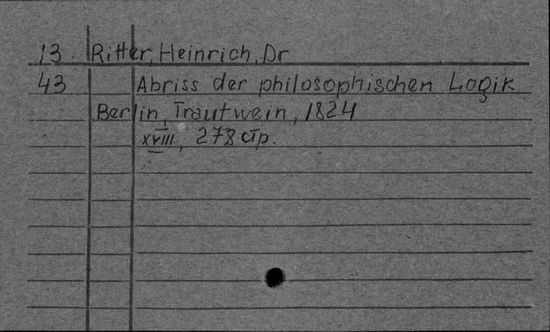 13. Ritter, Heinrich, Dr
43 Abriss der philosophischen Logik
Berlin, Trautwein, 1824
XVIII, 278 стр.